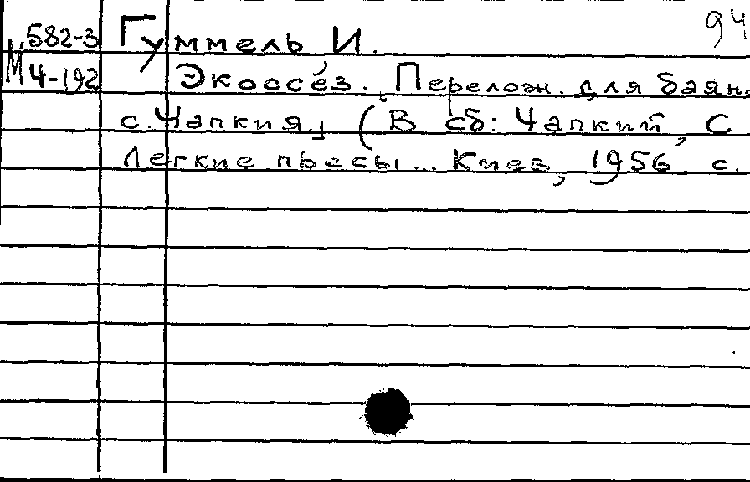 94
582-3 Гуммель И.
М4-192 Экоссез. Перелож. для баян.
с. Чапкия] (В сб: Чапкий, С
Легкие пьесы... Киев, 1956, с.